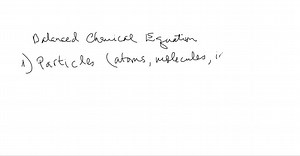 Balanced Chemical Equation
1) Particles (atoms, molecules, i